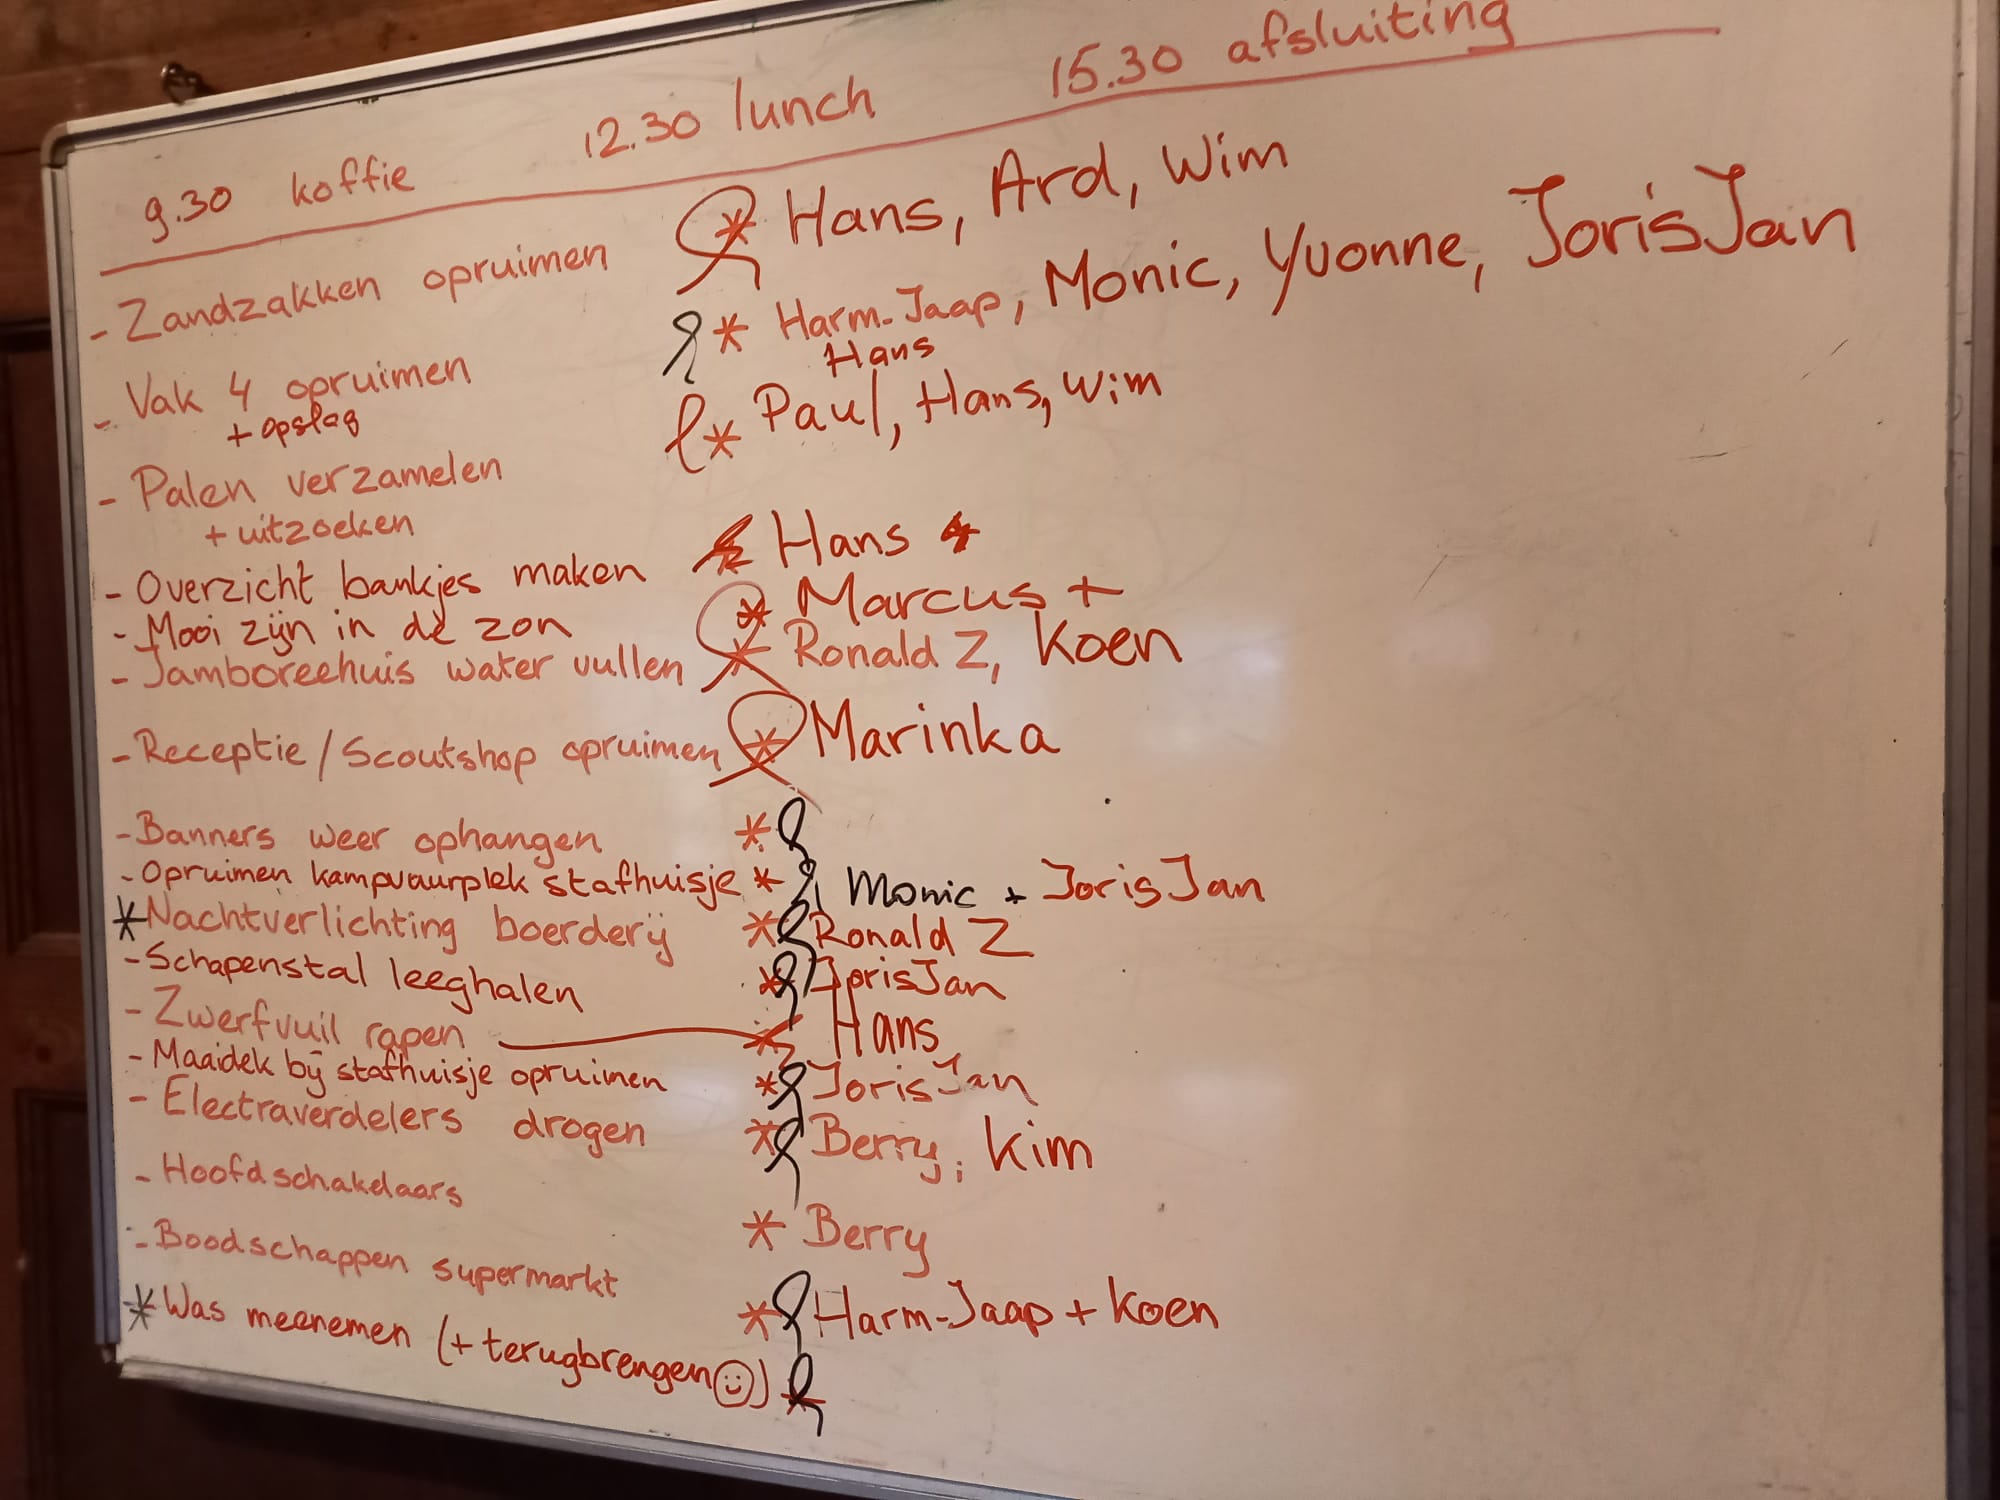 9.30 koffie 12.30 lunch 15.30 afsluiting
- Zandzakken opruimen * Hans, Ard, Wim
- Vak 4 opruimen * Harm-Jaap, Monic, Yvonne, JorisJan
+ opslag Hans
- Palen verzamelen * Paul, Hans, Wim
+ uitzoeken
- Overzicht bankjes maken * Hans *
- Mooi zijn in de zon * Marcus +
- Jamboreehuis water vullen * Ronald Z, Koen
- Receptie/Scoutshop opruimen * Marinka
- Banners weer ophangen *
- Opruimen kampvuurplek stafhuisje * Monic + JorisJan
* Nachtverlichting boerderij * Ronald Z
- Schapenstal leeghalen * JorisJan
- Zwerfvuil rapen * Hans
- Maaidek bij stafhuisje opruimen * JorisJan
- Electraverdelers drogen * Berry, Kim
- Hoofdschakelaars * Berry
- Boodschappen supermarkt * Harm-Jaap + Koen
* Was meenemen (+ terugbrengen ☺) *